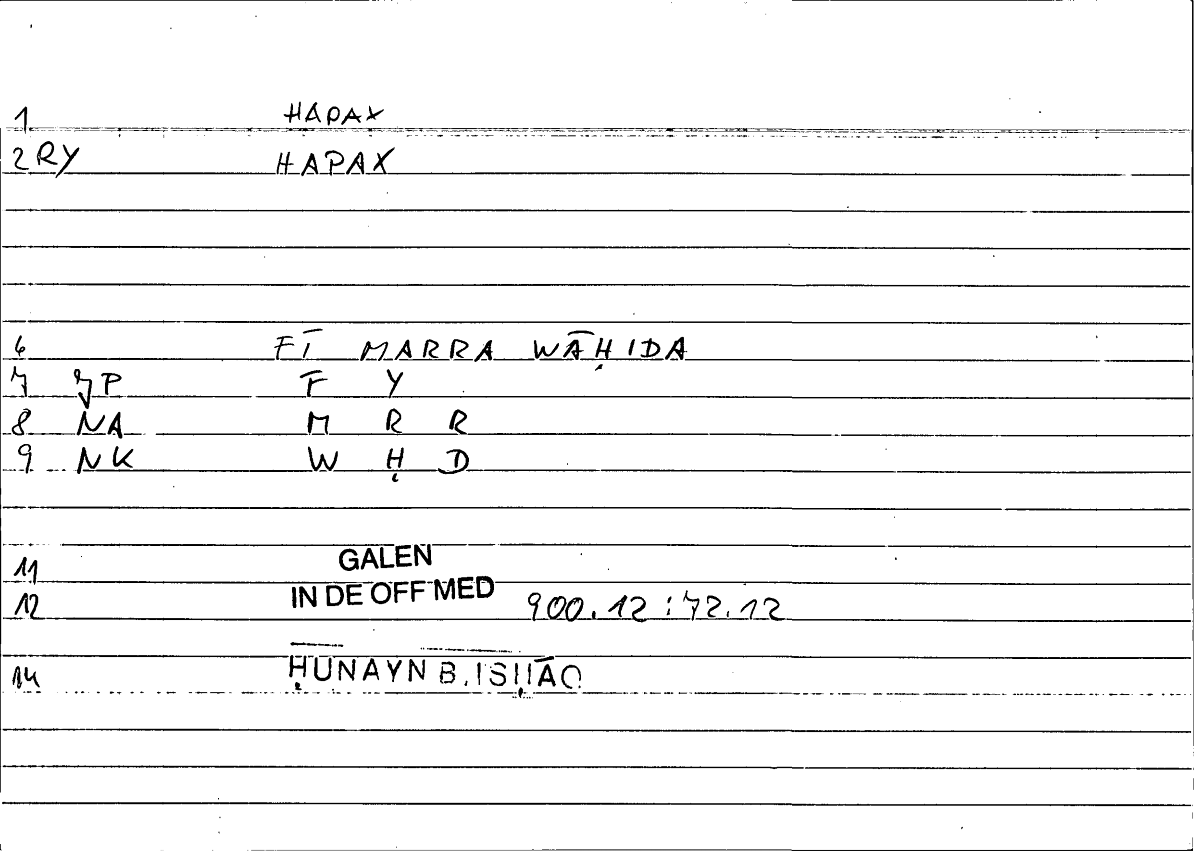 1 HAPAX
2 RY HAPAX
6 FĪ MARRA WĀḤIDA
7 JP F Y
8 NA M R R
9 NK W Ḥ D
11 GALEN
12 IN DE OFF MED 900.12 : 72.12
14 ḤUNAYN B. ISḤĀQ